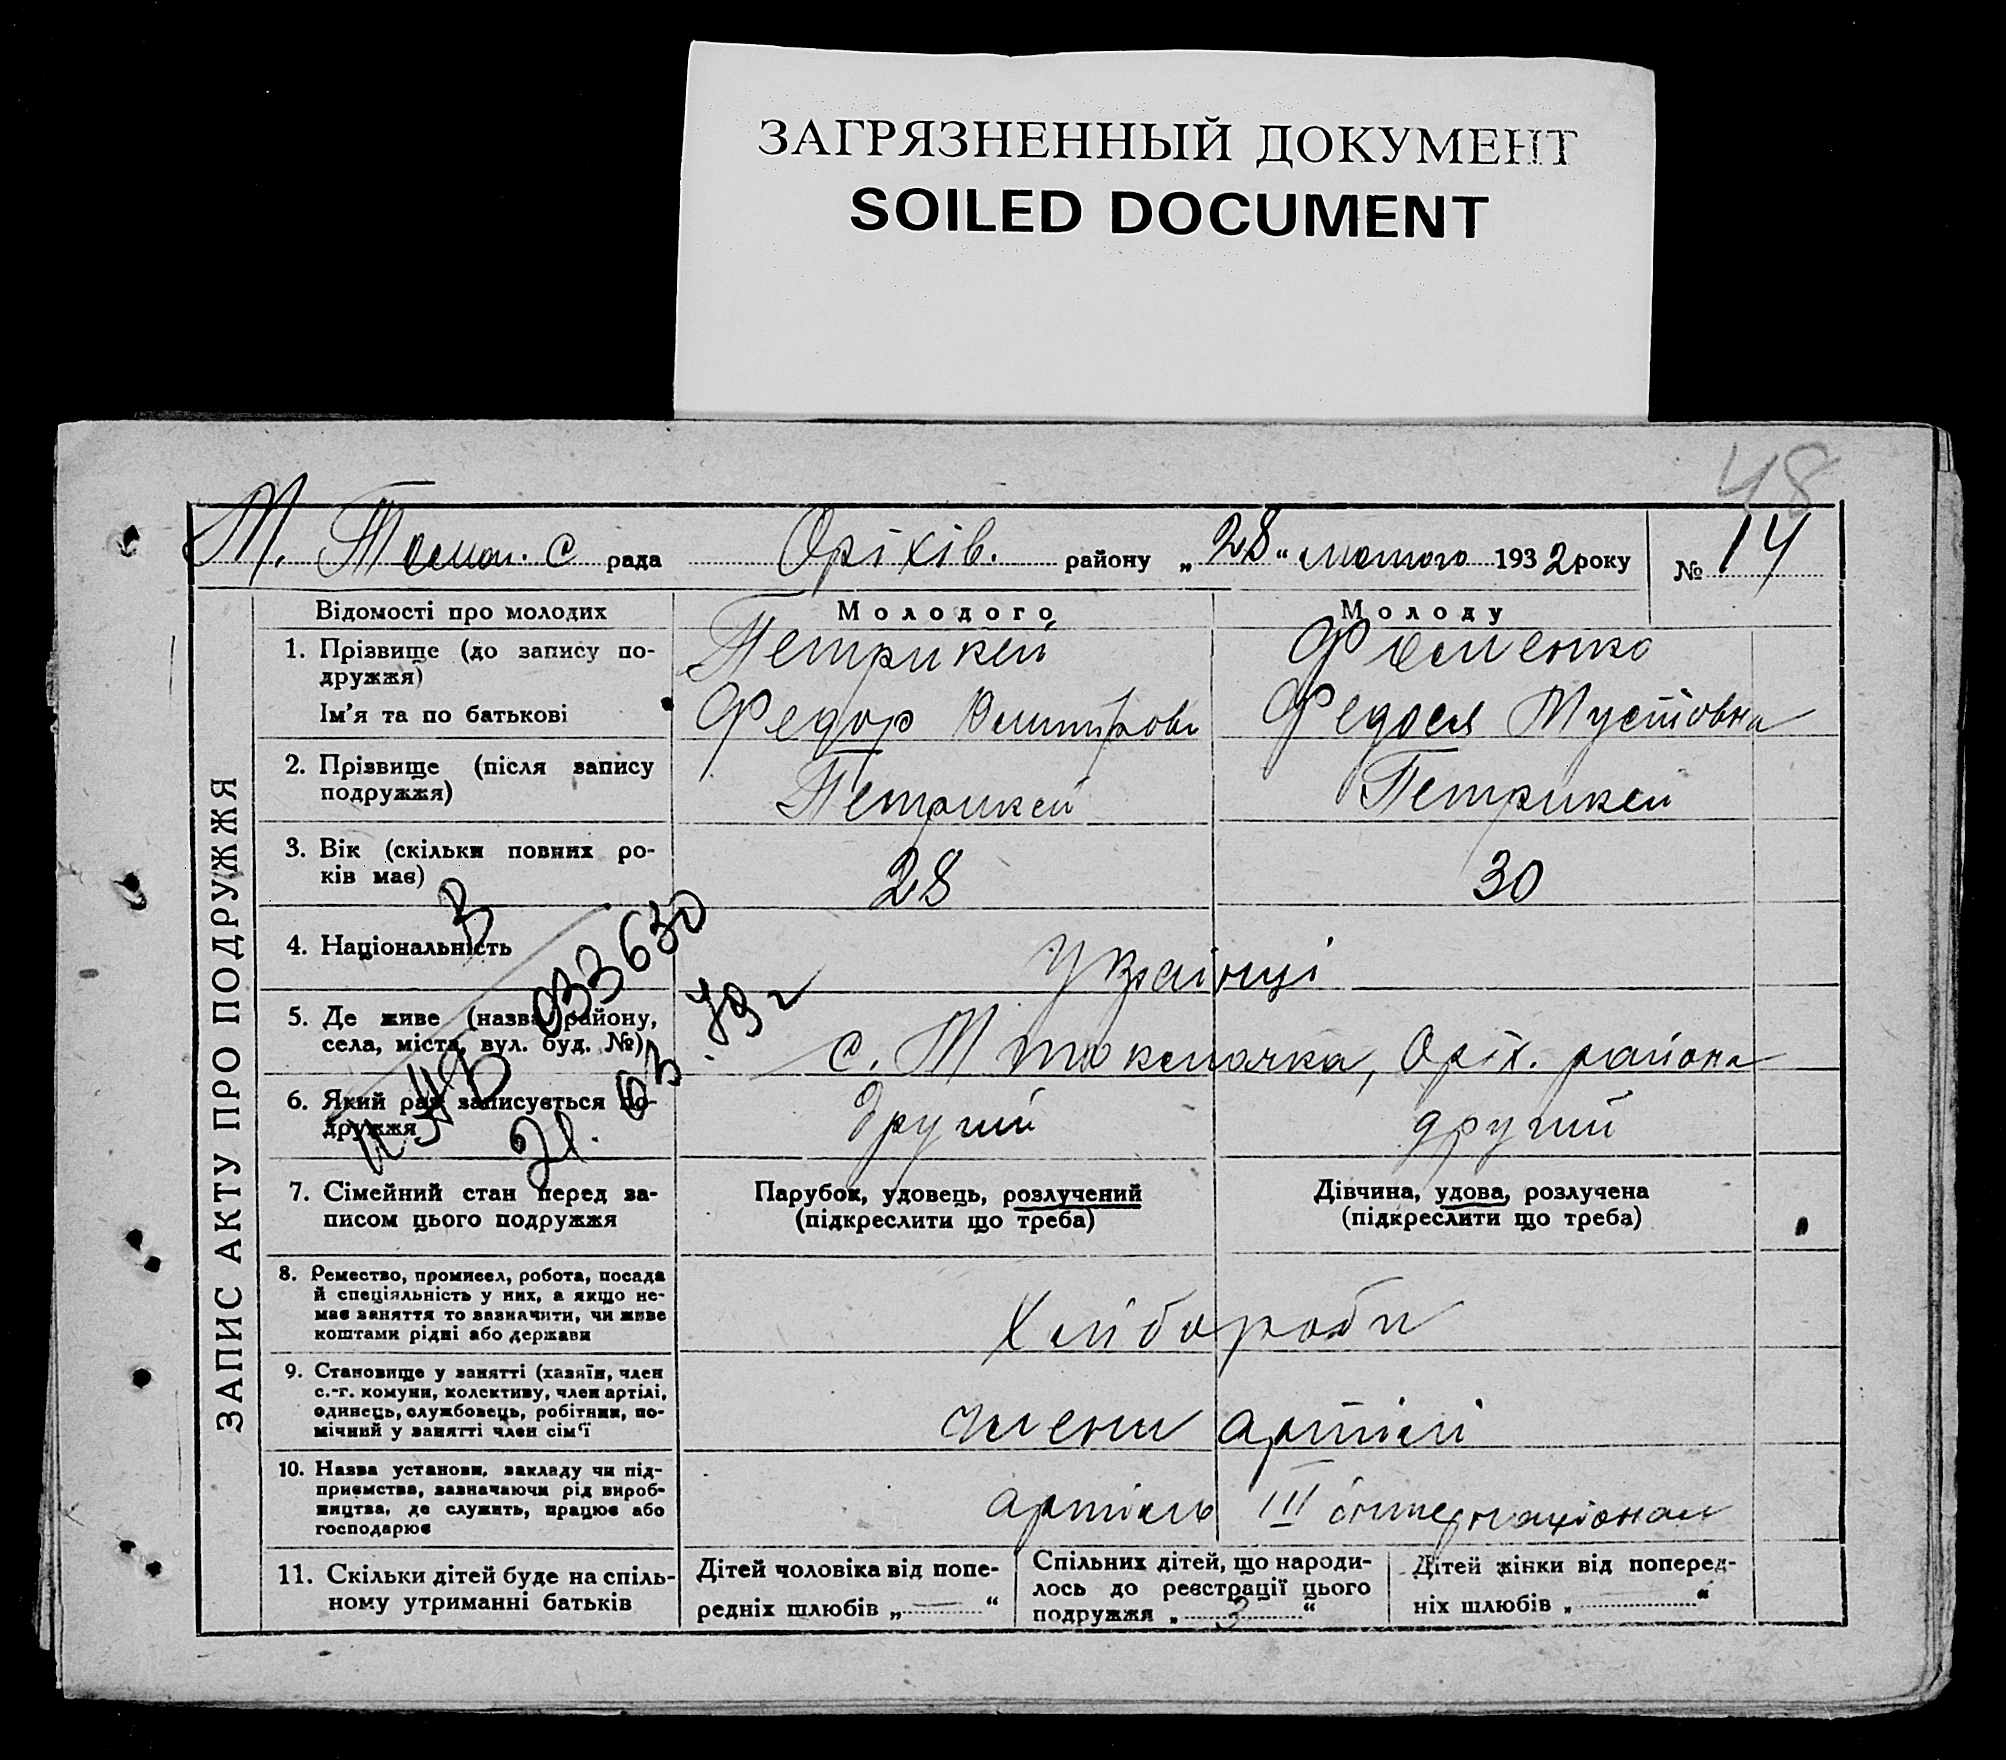 ЗАГРЯЗНЕННЫЙ ДОКУМЕНТ
SOILED DOCUMENT
48
М. Токмач. с рада Оріхів. району „28“ лютого 1932 року № 14
ЗАПИС АКТУ ПРО ПОДРУЖЖЯ
Відомості про молодих Молодого Молоду
1. Прізвище (до запису по-
дружжя) Петрикей Фоменко
Ім'я та по батькові Федор Федося
2. Прізвище (після запису
подружжя) Петрикей Петрикей
3. Вік (скільки повних ро-
ків має) 28 30
4. Національність Українці
5. Де живе (назва району,
села, міста, вул. буд. №) с. М Токмачка, Оріх. района
6. Який раз записується по-
дружжя Другий другий
033630
21.03.79 г
7. Сімейний стан перед за-
писом цього подружжя
Парубок, удовець, розлучений
(підкреслити що треба)
Дівчина, удова, розлучена
(підкреслити що треба)
8. Ремество, промисел, робота, посада
й спеціяльність у них, а якщо не-
має заняття то зазначити, чи живе
коштами рідні або держави
Хліборобы
9. Становище у занятті (хазяїн, член
с.-г. комуни, колективу, член артілі,
одинець, службовець, робітник, по-
мічний у занятті член сім'ї
члени артілі
10. Назва установи, закладу чи під-
приємства, зазначаючи рід вироб-
ництва, де служить, працює або
господарює
артіль III інтернаціонал
11. Скільки дітей буде на спіль-
ному утриманні батьків
Дітей чоловіка від попе-
редніх шлюбів „—“
Спільних дітей, що народи-
лось до реєстрації цього
подружжя „3“
Дітей жінки від поперед-
ніх шлюбів „ “